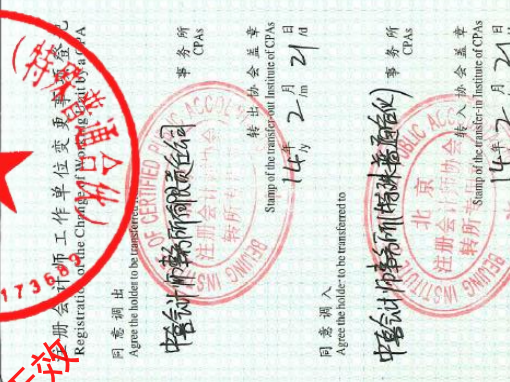 注册会计师工作单位变更事项登记
Registration of the Change of Working Unit by a CPA
同意调出
Agree the holder to be transferred from
中喜会计师事务所有限责任公司
事务所
CPAs
转出协会盖章
Stamp of the transfer-out Institute of CPAs
14年 2月 21日
/y /m /d
同意调入
Agree the holder to be transferred to
中喜会计师事务所(特殊普通合伙)
事务所
CPAs
转入协会盖章
Stamp of the transfer-in Institute of CPAs
14年 2月 21日
(特殊普通合伙)
173683
OF CERTIFIED PUBLIC ACCOU
BEIJING INS
注册会计师协会
转所专
PUBLIC ACC
BEIJING INSTITUTE
北京
注册会计师协会
转所专
无效